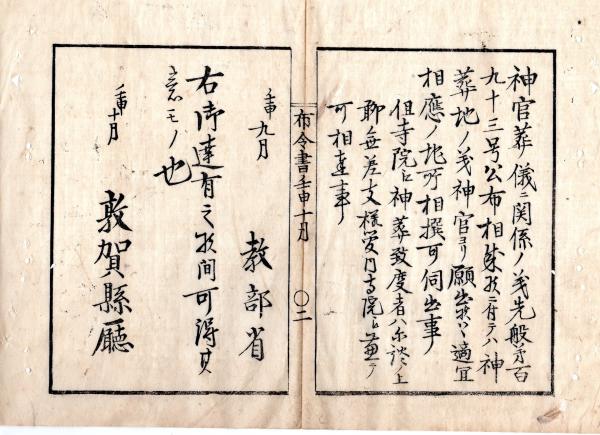 神官葬儀ニ関係ノ義先般第百
九十三号公布相成候ニ付テハ神
葬地ノ義神官ヨリ願出候ハヽ適宜
相應ノ地所相撰可伺出事
但寺院ニ神葬致度者ハ示談ノ上
聊無差支様管内寺院ニ兼テ
可相達事
壬申九月
教部省
右御達有之候間可得其
意モノ也
壬申十月
敦賀縣廳
布令書壬申十月
〇二